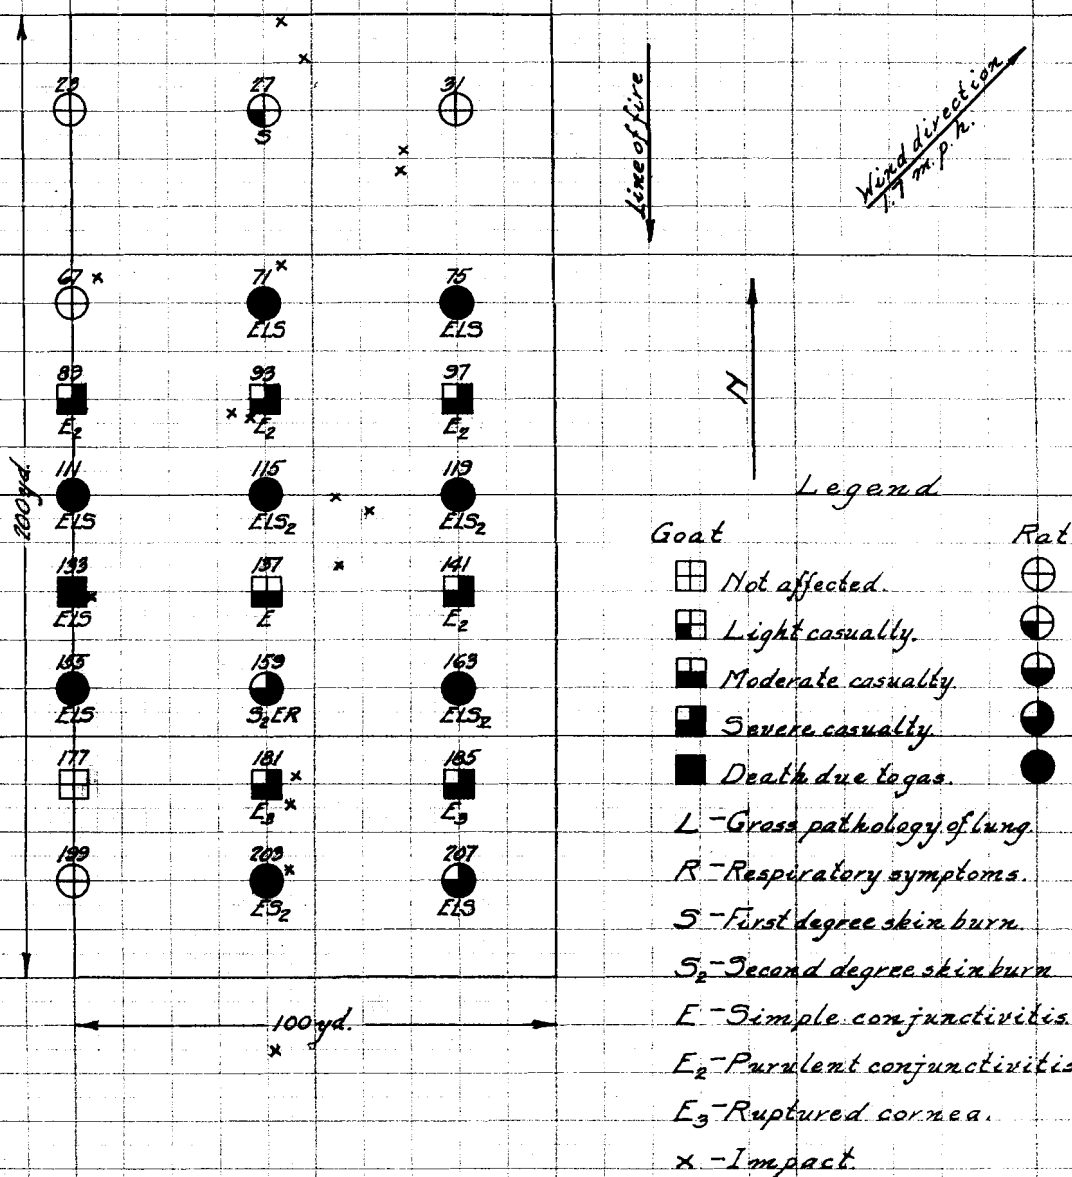 23 27 31
S
Line of fire
Wind direction
1.7 m.p.h.
67 71 75
ELS ELS
N
89 93 97
E₂ E₂ E₂
200 yd.
111 115 119
ELS ELS₂ ELS₂
133 137 141
ELS E E₂
155 159 163
ELS S₂ER ELS₂
177 181 185
E₃ E₃
199 203 207
ES₂ ELS
100 yd.
Legend
Goat Rat
Not affected.
Light casualty.
Moderate casualty
Severe casualty
Death due to gas.
L - Gross pathology of lung.
R - Respiratory symptoms.
S - First degree skin burn.
S₂ - Second degree skin burn
E - Simple conjunctivitis.
E₂ - Purulent conjunctivitis
E₃ - Ruptured cornea.
x - Impact.